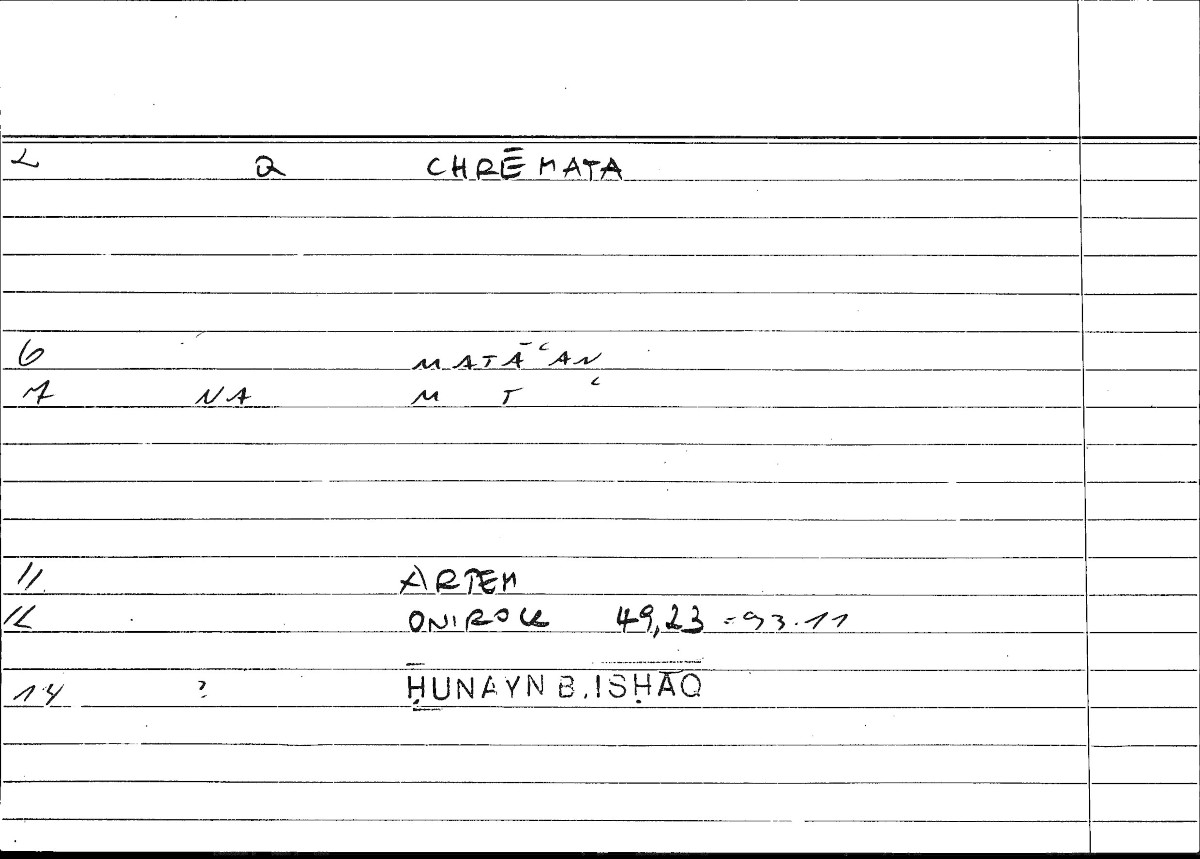 2 Q CHRĒMATA
6 MATĀʿAN
7 NA M T ʿ
11 ARTEM
12 ONIROCR 49,23 = 93.11
14 ? ḤUNAYN B. ISḤĀQ